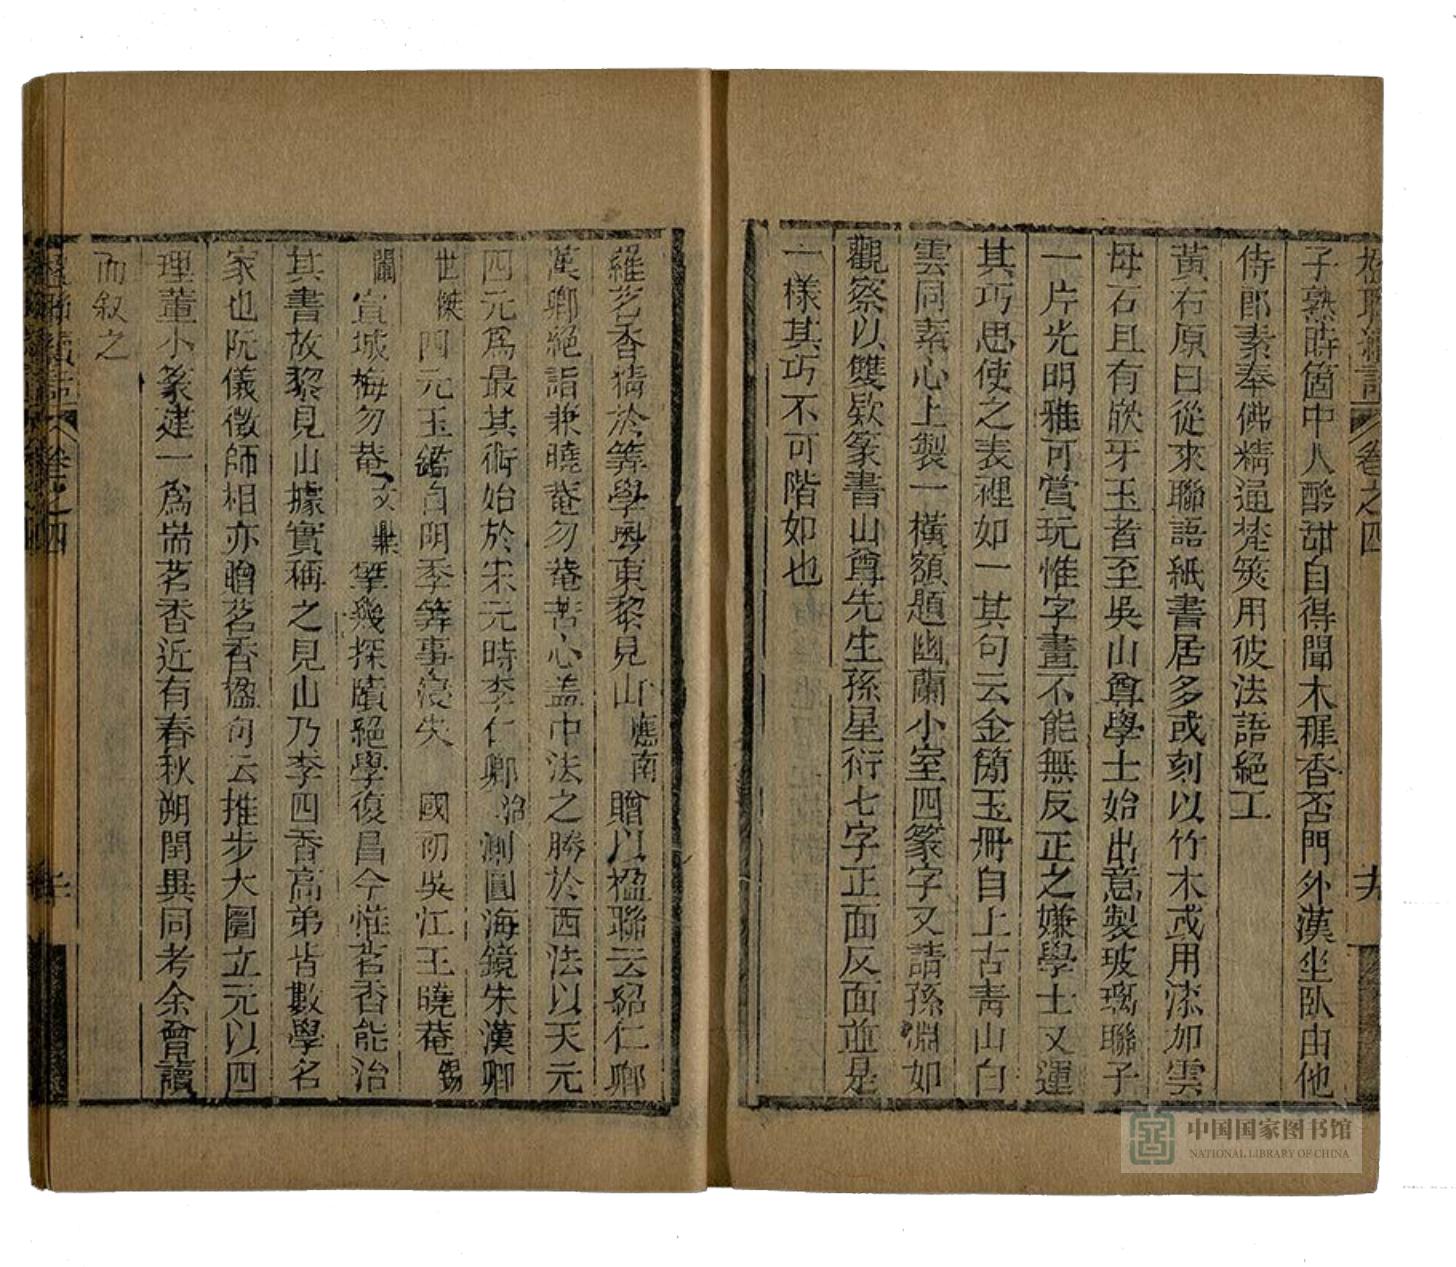 楹聯續話 卷之四 十九
子熟時箇中人酣甜自得聞木樨香否門外漢坐臥由他
侍郎素奉佛精通梵筴用彼法語絕工
黃右原曰從來聯語紙書居多或刻以竹木或用漆加雲
母石且有嵌牙玉者至吳山尊學士始出意製玻璃聯子
一片光明雅可賞玩惟字畫不能無反正之嫌學士又運
其巧思使之表裡如一其句云金簡玉冊自上古青山白
雲同素心上製一橫額題幽蘭小室四篆字又請孫淵如
觀察以雙款篆書山尊先生孫星衍七字正面反面並是
一樣其巧不可階如也
羅茗香精於筭學粵東黎見山應南贈以楹聯云紹仁卿
漢卿絕詣兼曉菴勿菴苦心盖中法之勝於西法以天元
四元爲最其術始於宋元時李仁卿冶測圓海鏡朱漢卿
世傑四元玉鑑自明季筭事浸失 國初吳江王曉菴錫
闡宣城梅勿菴文鼎筆幾探賾絕學復昌今惟茗香能治
其書故黎見山據實稱之見山乃李四香高弟皆數學名
家也阮儀徵師相亦贈茗香楹句云推步大圜立元以四
理董小篆建一爲耑茗香近有春秋朔閏異同考余曾讀
而叙之
楹聯續話 卷之四 二十
中国国家图书馆
NATIONAL LIBRARY OF CHINA